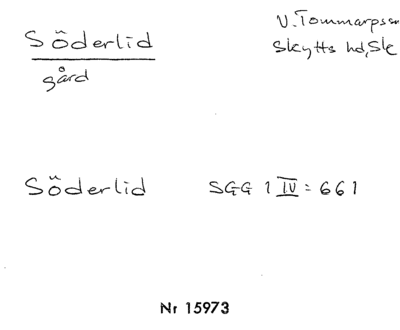 Söderlid
gård
V. Tommarps sn
Skytts hd, Sk
Söderlid SGG 1 IV = 661
Nr 15973